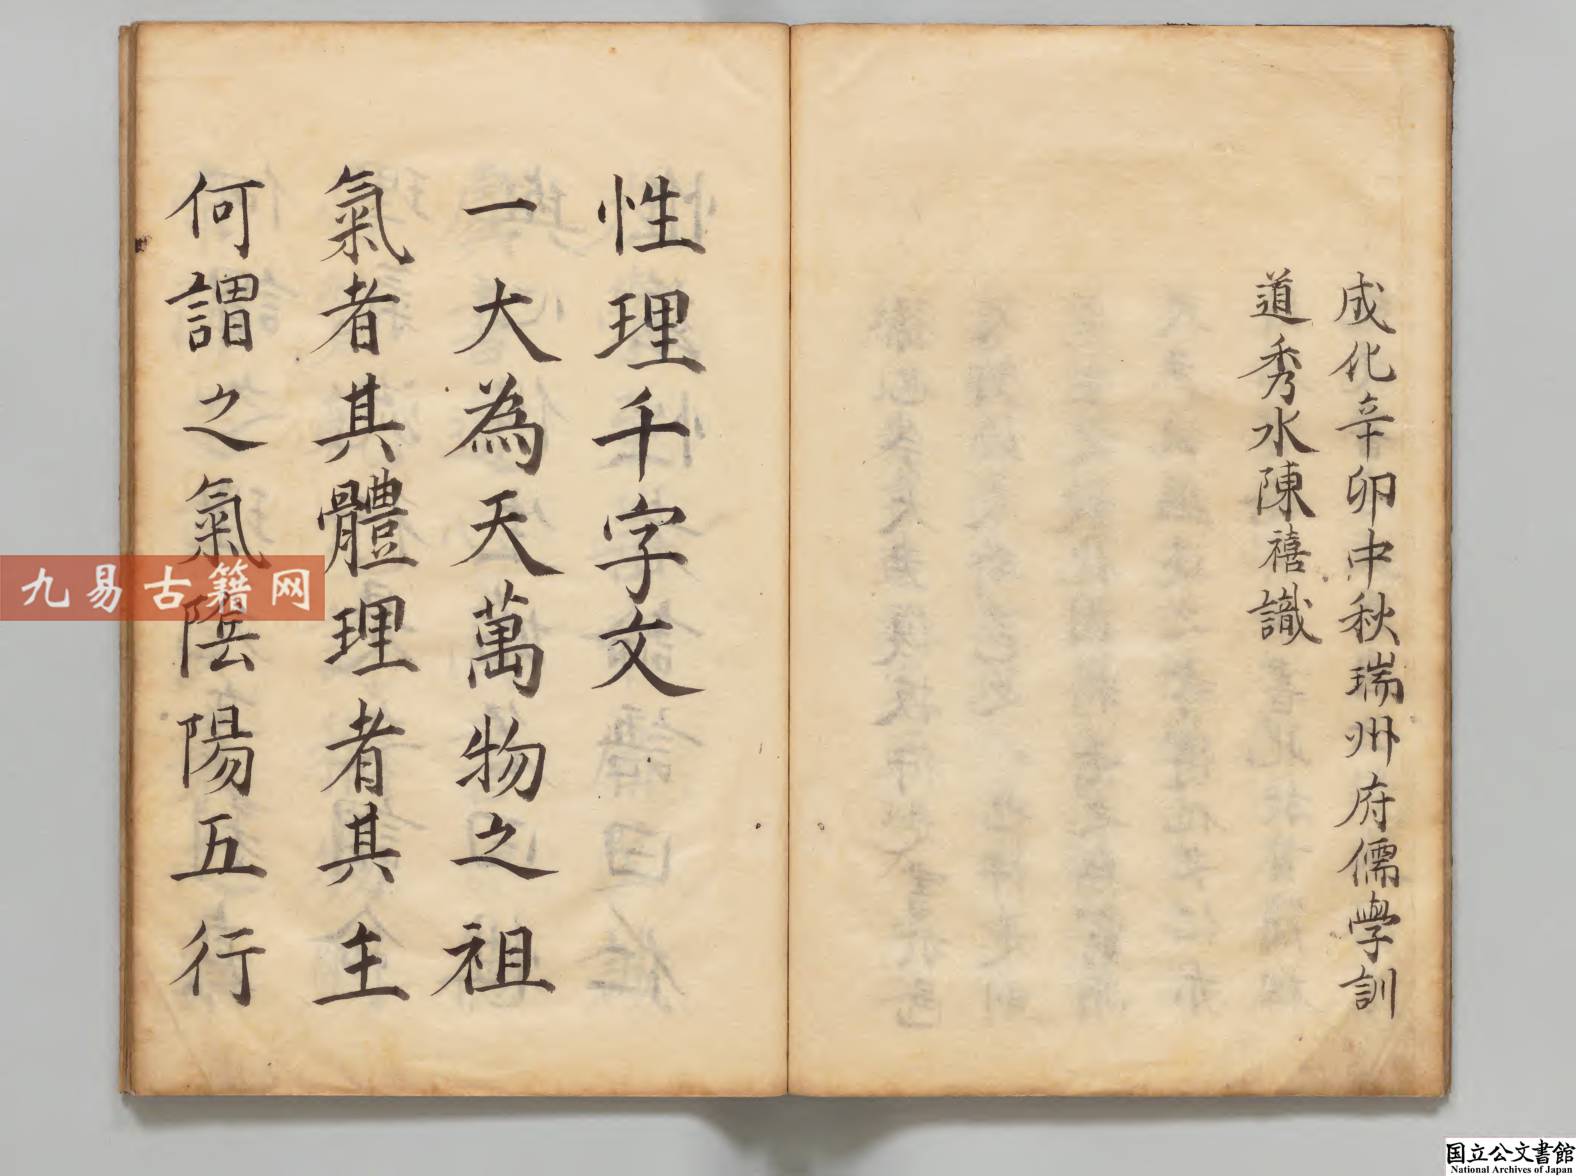 成化辛卯中秋瑞州府儒學訓
道秀水陳禧識
性理千字文
一大為天萬物之祖
氣者其體理者其主
何謂之氣陰陽五行
九易古籍网
国立公文書館
National Archives of Japan